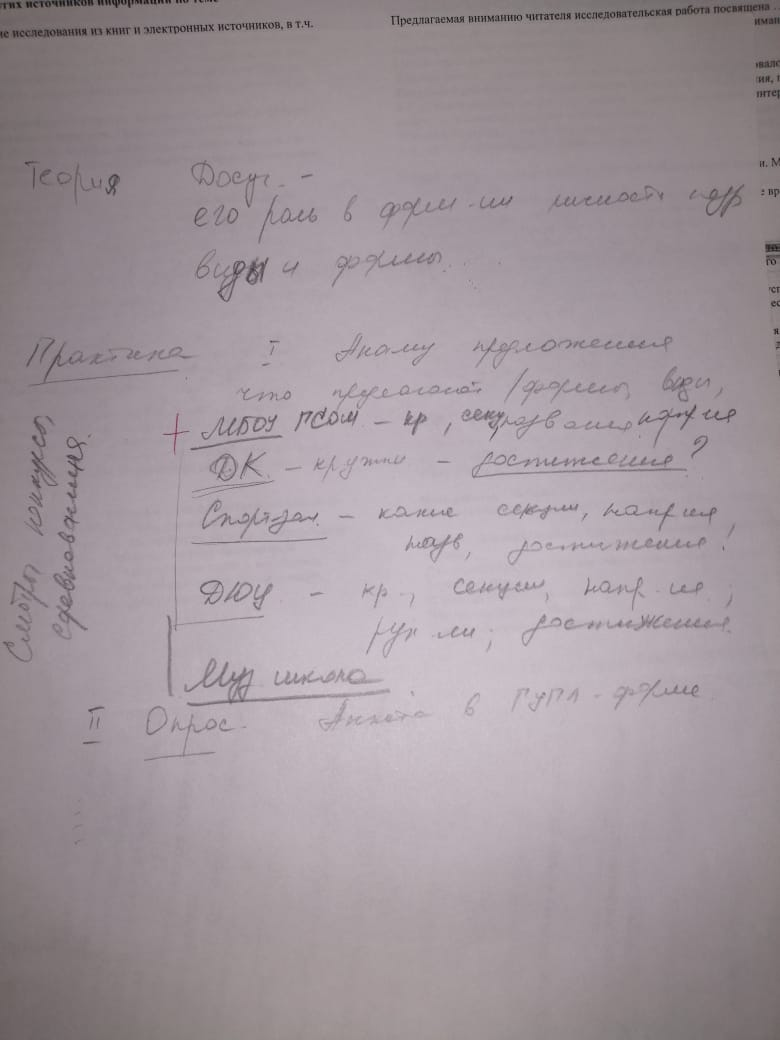 угих источников информации по теме
ие исследования из книг и электронных источников, в т.ч.
Предлагаемая вниманию читателя исследовательская работа посвящена ...
Теория Досуг. -
его роль в форм-ии личности подр
виды и формы.
Практика I Анализ предложения
что предлагают /формы, виды,
+ МБОУ ПСОШ - кр, секц,
ДК. - кружки - достижения?
Спортзал - какие секции, напр-ия,
назв, достижения!
ДЮЦ - кр., секции, напр-ия;
рук-ли; достижения.
Муз школа
II Опрос. Анкета в ГУГЛ-форме.
Смотры конкурсы,
соревнования.